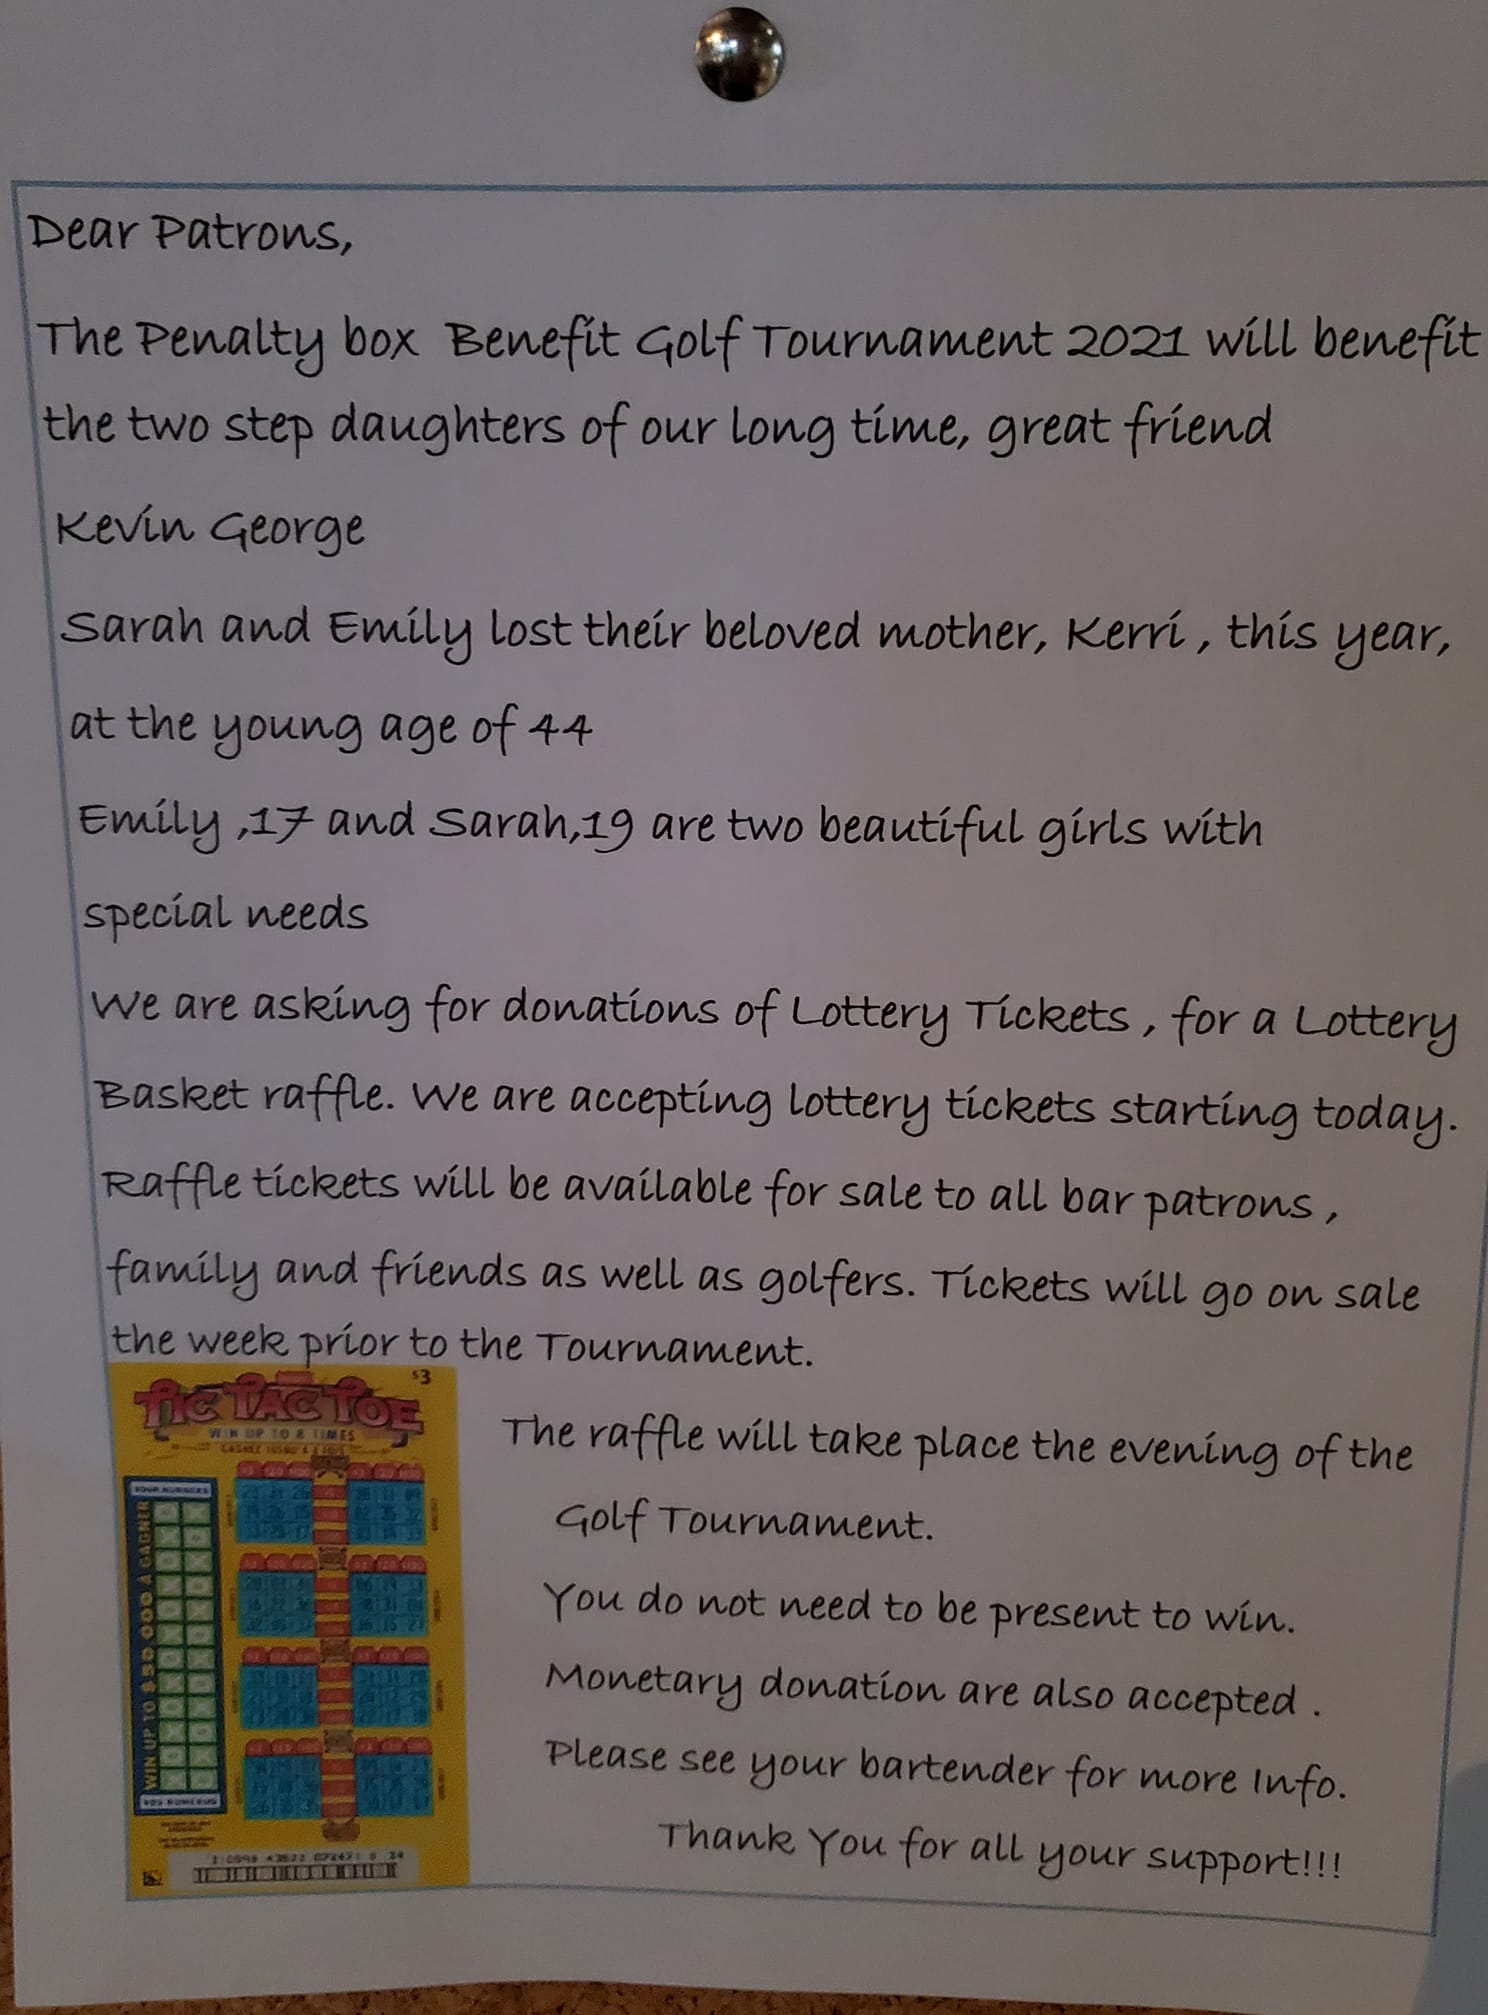 Dear Patrons,
The Penalty box Benefit Golf Tournament 2021 will benefit
the two step daughters of our long time, great friend
Kevin George
Sarah and Emily lost their beloved mother, Kerri , this year,
at the young age of 44
Emily ,17 and Sarah,19 are two beautiful girls with
special needs
We are asking for donations of Lottery Tickets , for a Lottery
Basket raffle. We are accepting lottery tickets starting today.
Raffle tickets will be available for sale to all bar patrons ,
family and friends as well as golfers. Tickets will go on sale
the week prior to the Tournament.
$3
TIC TAC TOE
WIN UP TO 8 TIMES
YOUR NUMBERS
WIN UP TO $50 000 À GAGNER
VOS NUMÉROS
The raffle will take place the evening of the
Golf Tournament.
You do not need to be present to win.
Monetary donation are also accepted .
Please see your bartender for more Info.
Thank You for all your support!!!